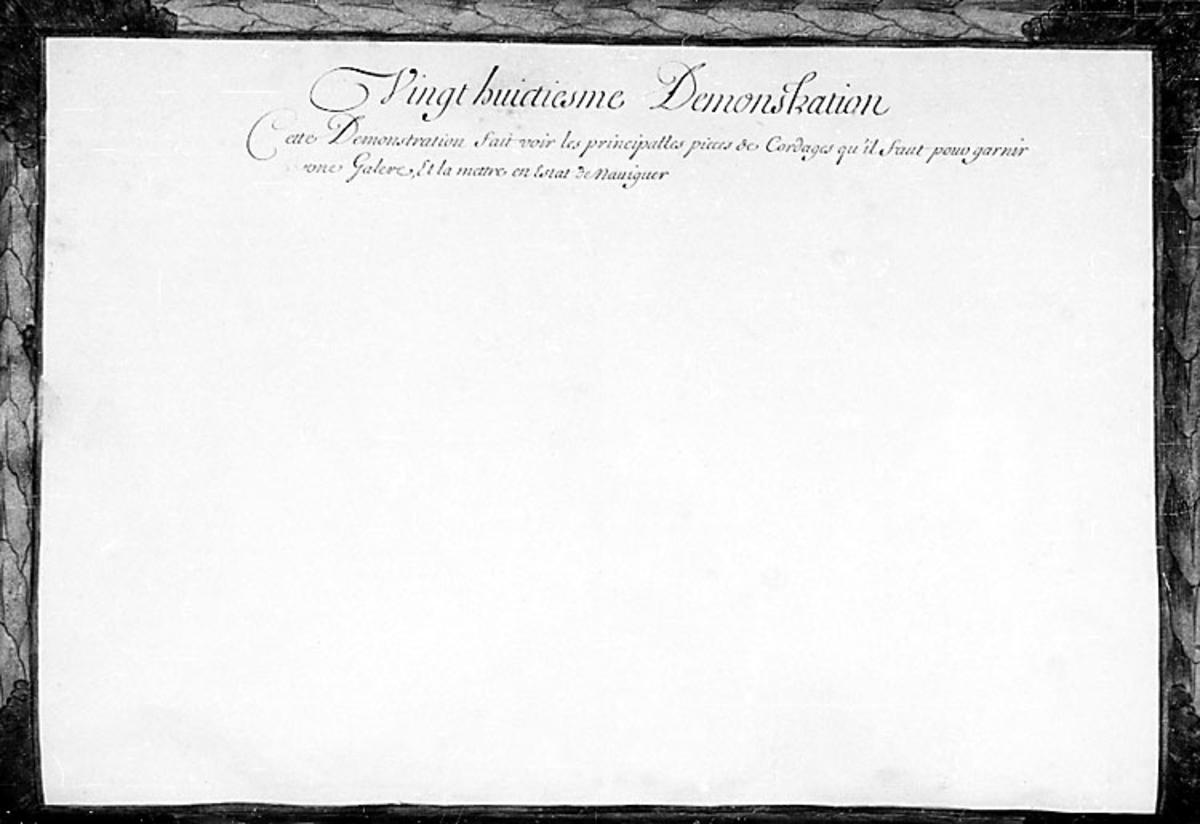 Vingt huictiesme Demonstration
Cette Demonstration fait voir les principalles pieces de Cordages qu'il faut pour garnir
vne Galere, Et la mettre en Estat de Nauiguer